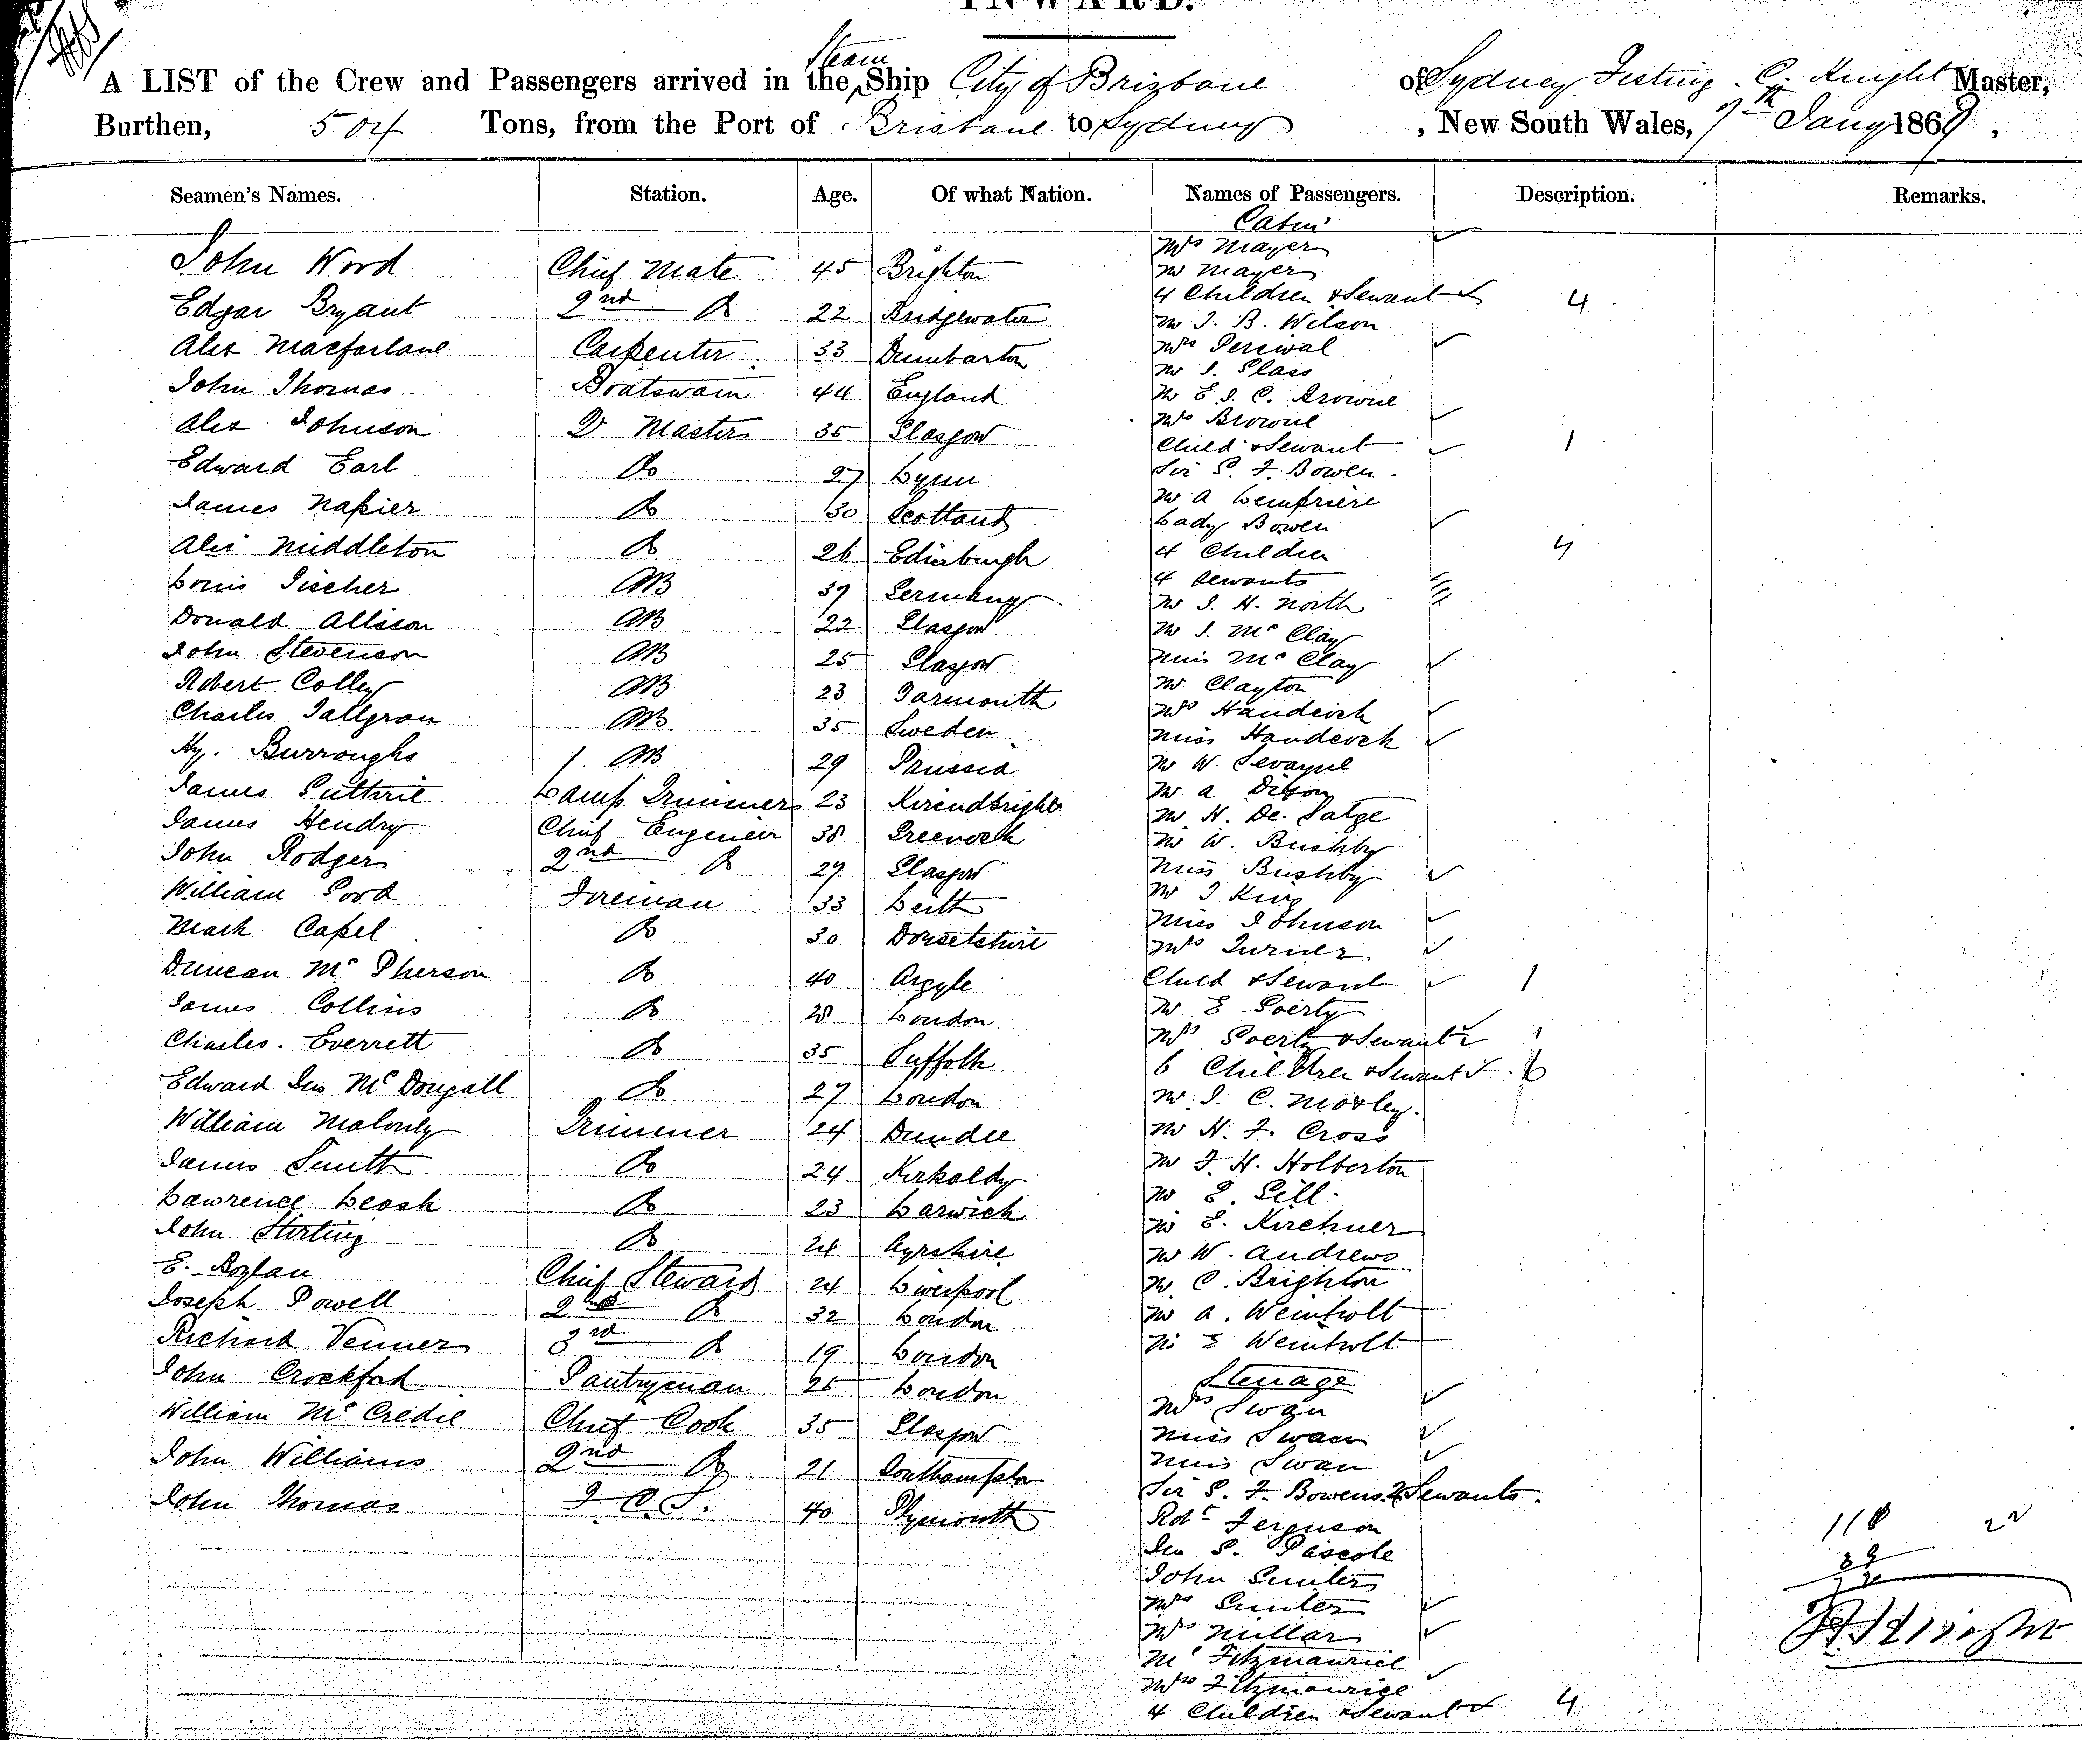 INWARD.
A LIST of the Crew and Passengers arrived in the Steam Ship City of Brisbane of Sydney C. Knight Master,
Burthen, 504 Tons, from the Port of Brisbane to Sydney , New South Wales, 7th Jany 1868.
Seamen's Names. Station. Age. Of what Nation. Names of Passengers. Description. Remarks.
Cabin
John Word Chief Mate 45 Brighton
Edgar Bryant 2nd Do 22 Bridgewater
Alex Macfarlane Carpenter 33 Dumbarton
John Thomas Boatswain 44 England
Alex Johnson Q Master 35 Glasgow
Edward Earl Do 27 Lynn
James Napier Do 30 Scotland
Alex Middleton Do 26 Edinburgh
Louis Fischer AB 39 Germany
Donald Allison AB 22 Glasgow
John Stevenson AB 25 Glasgow
Robert Colley AB 23 Yarmouth
Charles Tallgron AB 35 Sweden
Hy. Burroughs AB 29 Prussia
James Guthrie Lamp Trimmer 23 Kircudbright
James Hendry Chief Engineer 38 Greenock
John Rodger 2nd Do 29 Glasgow
William Ford Fireman 33 Leith
Mark Capel Do 30 Dorsetshire
Duncan McPherson Do 40 Argyle
James Collins Do 28 London
Charles Everrett Do 35 Suffolk
Edward Jno McDougall Do 27 London
William Malonly Trimmer 24 Dundee
James Smith Do 24 Kirkaldy
Lawrence Leosk Do 23 Larwick
John Stirling Do 24 Ayrshire
E. Boylan Chief Steward 24 Liverpool
Joseph Powell 2nd Do 32 London
Richard Venner 3rd Do 19 London
John Crockford Pantryman 25 London
William McCredie Chief Cook 35 Glasgow
John Williams 2nd Do 21 Southampton
John Thomas 40 Plymouth
Mrs Mayer
Mr Mayer
4 Children & Servant 4
Mr J. B. Wilson
Mrs Percival
Mr J. Glass
Mr E. J. C. Browne
Mrs Browne
Child & Servant 1
Sir G. F. Bowen
Mr A Lempriere
Lady Bowen
4 Children 4
4 Servants
Mr J. H. North
Mr J. McClay
Miss McClay
Mr Clayton
Mrs Handcock
Miss Handcock
Mr W.
Mr A Dixon
Mr H. De. Satge
Mr W. Bushby
Miss Bushby
Mr J King
Miss Johnson
Mrs Turner
Child & Servant 1
Mr E Goerty
Mrs Goerty & Servant 1
6 Children & Servant 6
Mr J. C. Morley
Mr H. F. Cross
Mr F. H. Holberton
Mr E. Gill
Mr E. Kirchner
Mr W. Andrews
Mr C. Brighton
Mr A. Weinholt
Mr E Weinholt
Steerage
Mrs Swan
Miss Swan
Miss Swan
Sir G. F. Bowens 2 Servants
Robt Ferguson
Jno G. Pascole
John Gunter
Mrs Gunter
Mrs Millar
Mr Fitzmaurice
Mrs Fitzmaurice
4 Children & Servant 4
118 22